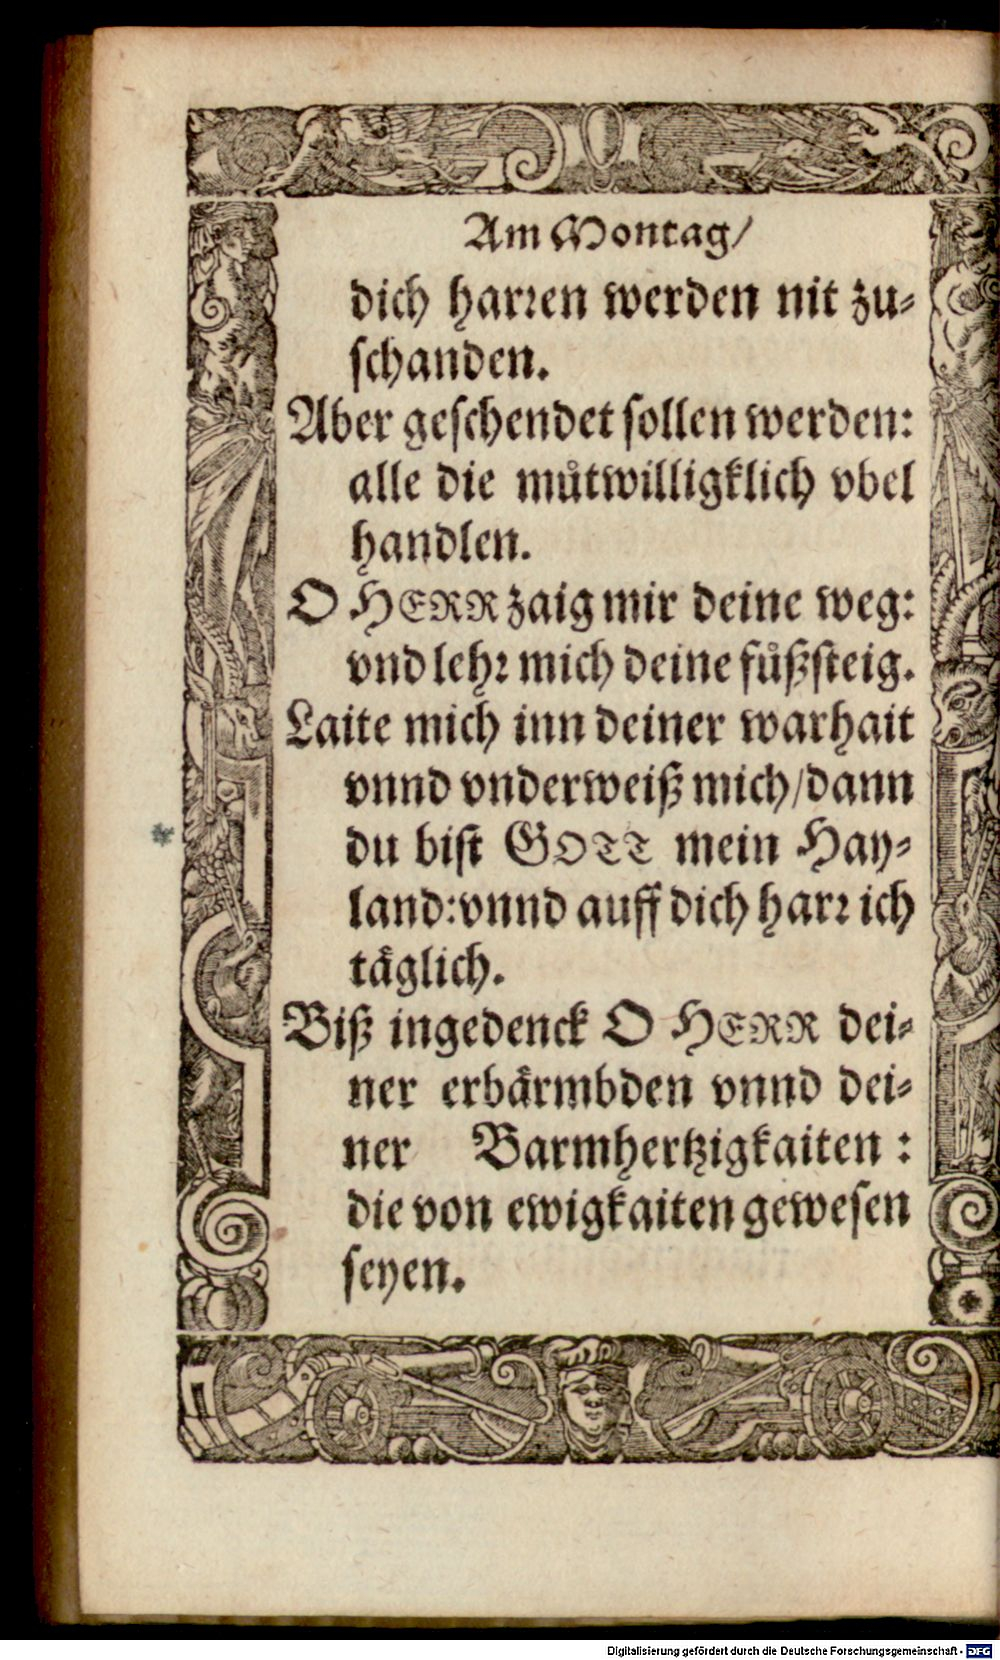 Am Montag/
dich harꝛen werden nit zu⸗
ſchanden.
Aber geſchendet ſollen werden:
alle die muͦtwilligklich vbel
handlen.
O HERR zaig mir deine weg:
vnd lehꝛ mich deine fuͦßſteig.
Laite mich inn deiner warhait
vnnd vnderweiß mich/dann
du biſt GOTT mein Hay⸗
land:vnnd auff dich harꝛ ich
taͤglich.
Biß ingedenck O HERR dei⸗
ner erbaͤrmbden vnnd dei⸗
ner Barmhertzigkaiten :
die von ewigkaiten geweſen
ſeyen.
Digitalisierung gefördert durch die Deutsche Forschungsgemeinschaft - DFG